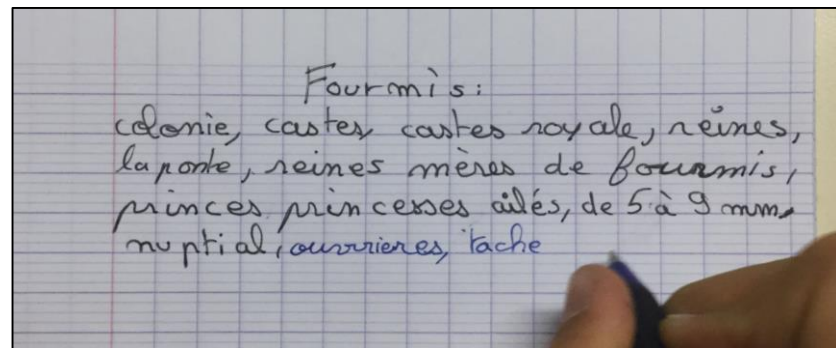 Fourmis:
colonie, castes, castes royale, reines,
la ponte, reines mères de fourmis,
princes princesses ailés, de 5 à 9 mm,
nuptial, ouvrieres, tache